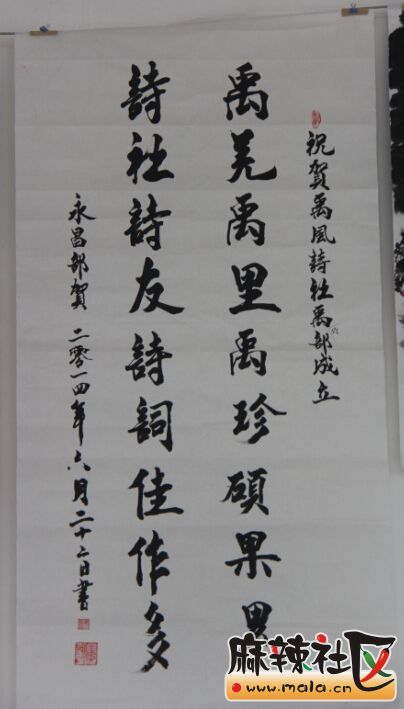 祝賀禹風詩社禹穴部成立
禹羌禹里禹珍碩果累
詩社詩友詩詞佳作多
永昌部賀 二零一四年六月二十二日書
麻辣社区
www.mala.cn